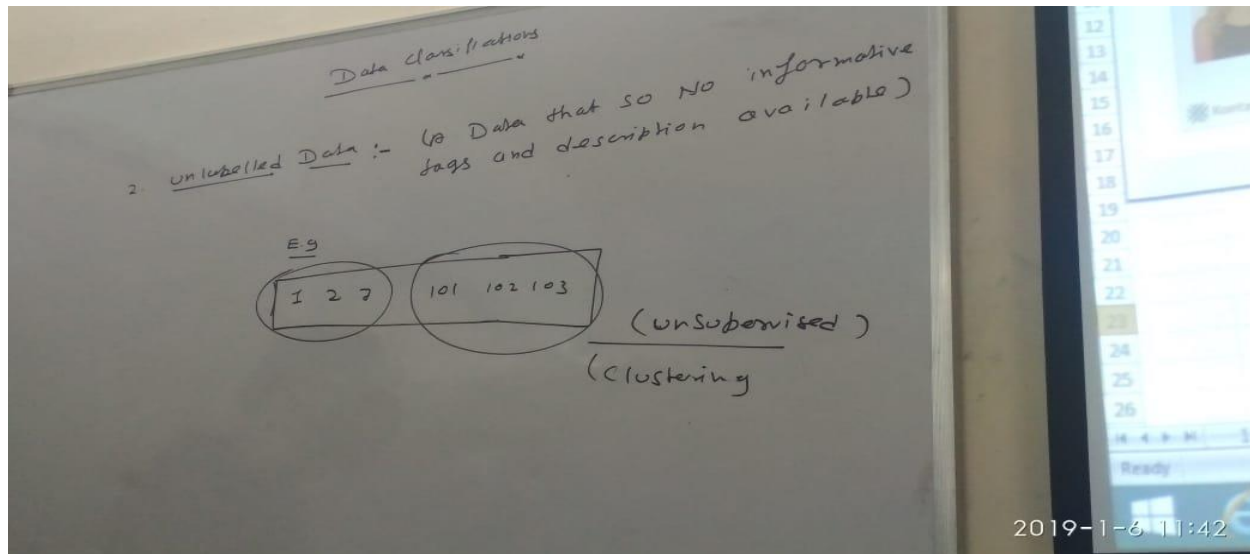 Data Classifiations
2. unlabelled Data :- (A Data that so No informative
tags and description available)
E.g
1 2 3 101 102 103
(unsupervised)
(Clustering
12
13
14
15
16
17
18
19
20
21
22
23
24
25
26
Ready
2019-1-6 11:42